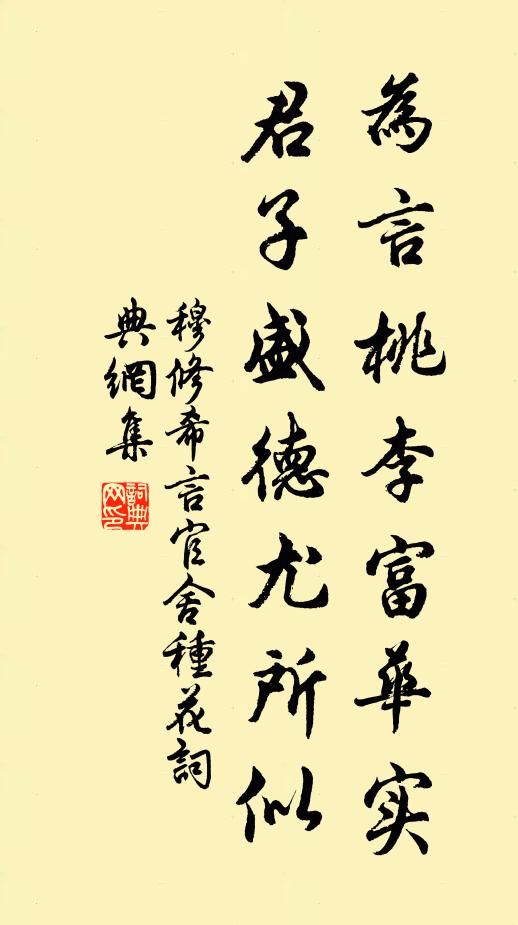 為言桃李富華实
君子盛德尤所似
穆修希言官舍種花詞
典網集
詞典网印